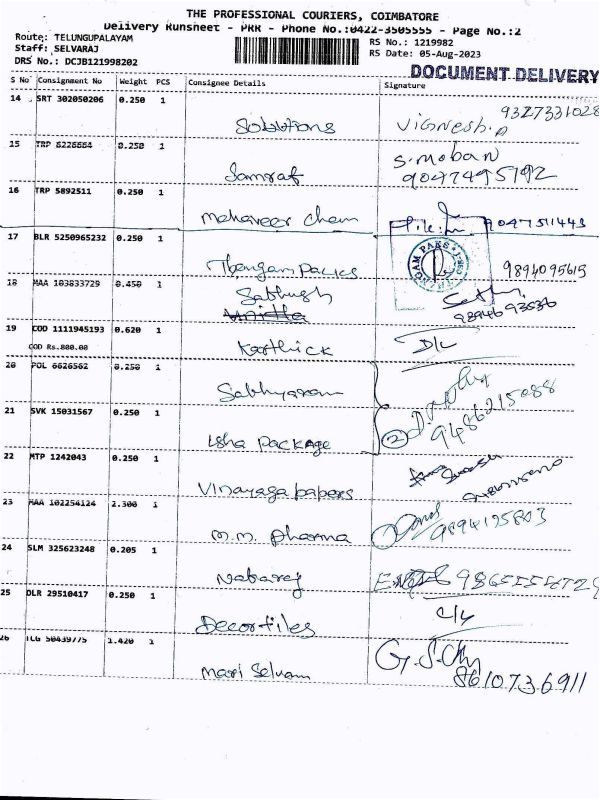 THE PROFESSIONAL COURIERS, COIMBATORE
Delivery Runsheet - PRR - Phone No.:0422-3505555 - Page No.:2
Route: TELUNGUPALAYAM
Staff: SELVARAJ
DRS No.: DCJB121998202
RS No.: 1219982
RS Date: 05-Aug-2023
DOCUMENT DELIVERY
S No Consignment No Weight PCS Consignee Details Signature
14 SRT 302050206 0.250 1
Solutions Vignesh.P 9327331028
15 TRP 6226664 0.250 1
Samraj S.mohan
9047495192
16 TRP 5892511 0.250 1
Mahaveer Chem 9047511443
17 BLR 5250965232 0.250 1
Thengam Packs 9894095615
18 MAA 103833729 0.450 1
Sabhugh
19 COD 1111945193 0.620 1
COD Rs.800.00
Karthick D/L
20 POL 6626562 0.250 1
Sabhyaram
21 SVK 15031567 0.250 1
Isha Package 2 9486215088
22 MTP 1242043 0.250 1
Vinayaga papers
23 MAA 102254124 2.300 1
M.M. Pharma 9894125803
24 SLM 325623248 0.205 1
Nataraj
25 DLR 29510417 0.250 1
Decor tiles C/L
26 TCG 50439775 1.420 1
Mari Selvam
8610736911